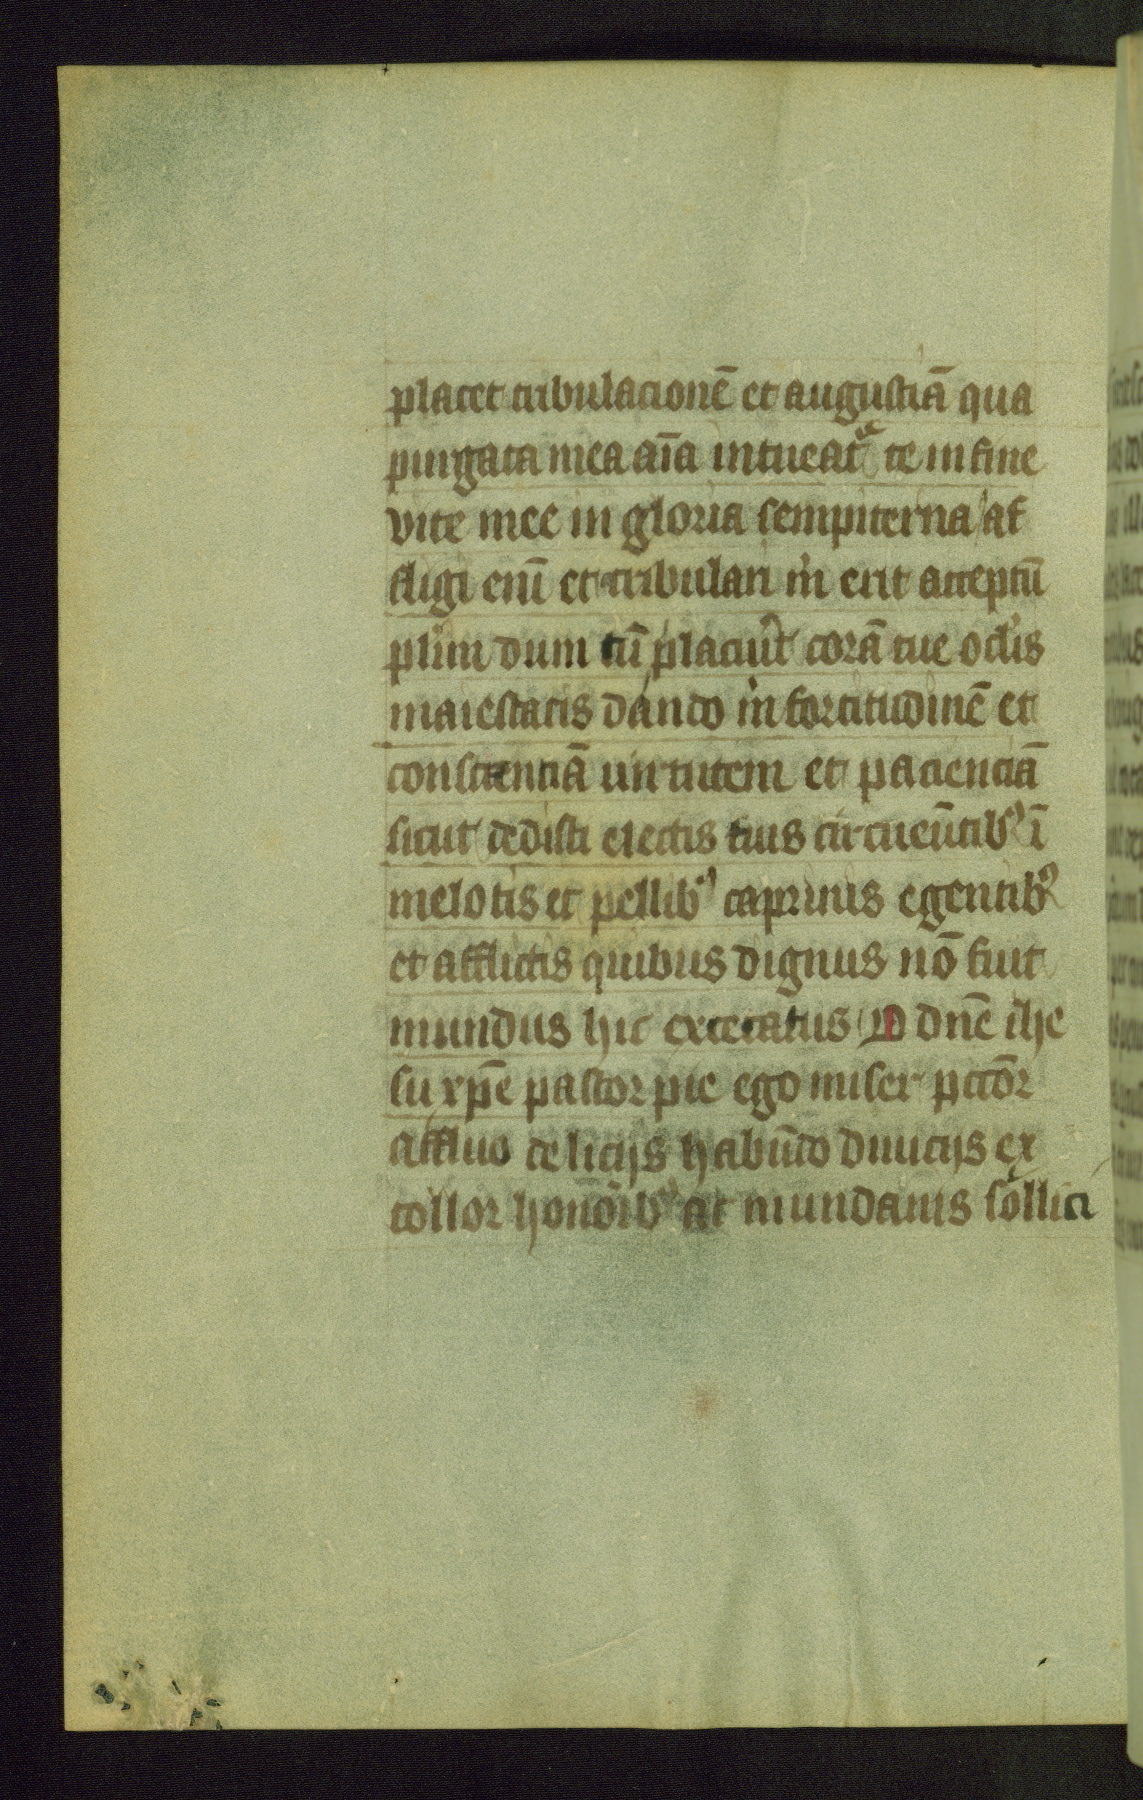 placet tribulacionē et augustiā qua
purgata mea aīa intueat᷑ te in fine
vite mee in gloria sempiterna af
fligi enī et tribulari m̓ erit acceptū
plīm dum tn̄ placiūt corā tue oc̄lis
maiestatis dando m̓ fortitudinē et
constantiā uirtutem et pacienciā
sicut dedisti electis tuis circueūtibꝰ ī
melotis et pellibꝰ caprinis egentibꝰ
et afflictis quibus dignus nō fuit
mundus hic excecatus O dn̄e ihe
su xp̄e pastor pie ego miser pccōr
affluo delicijs habūdo diuicijs ex
tollor honōibꝰ ac mundanis sollici